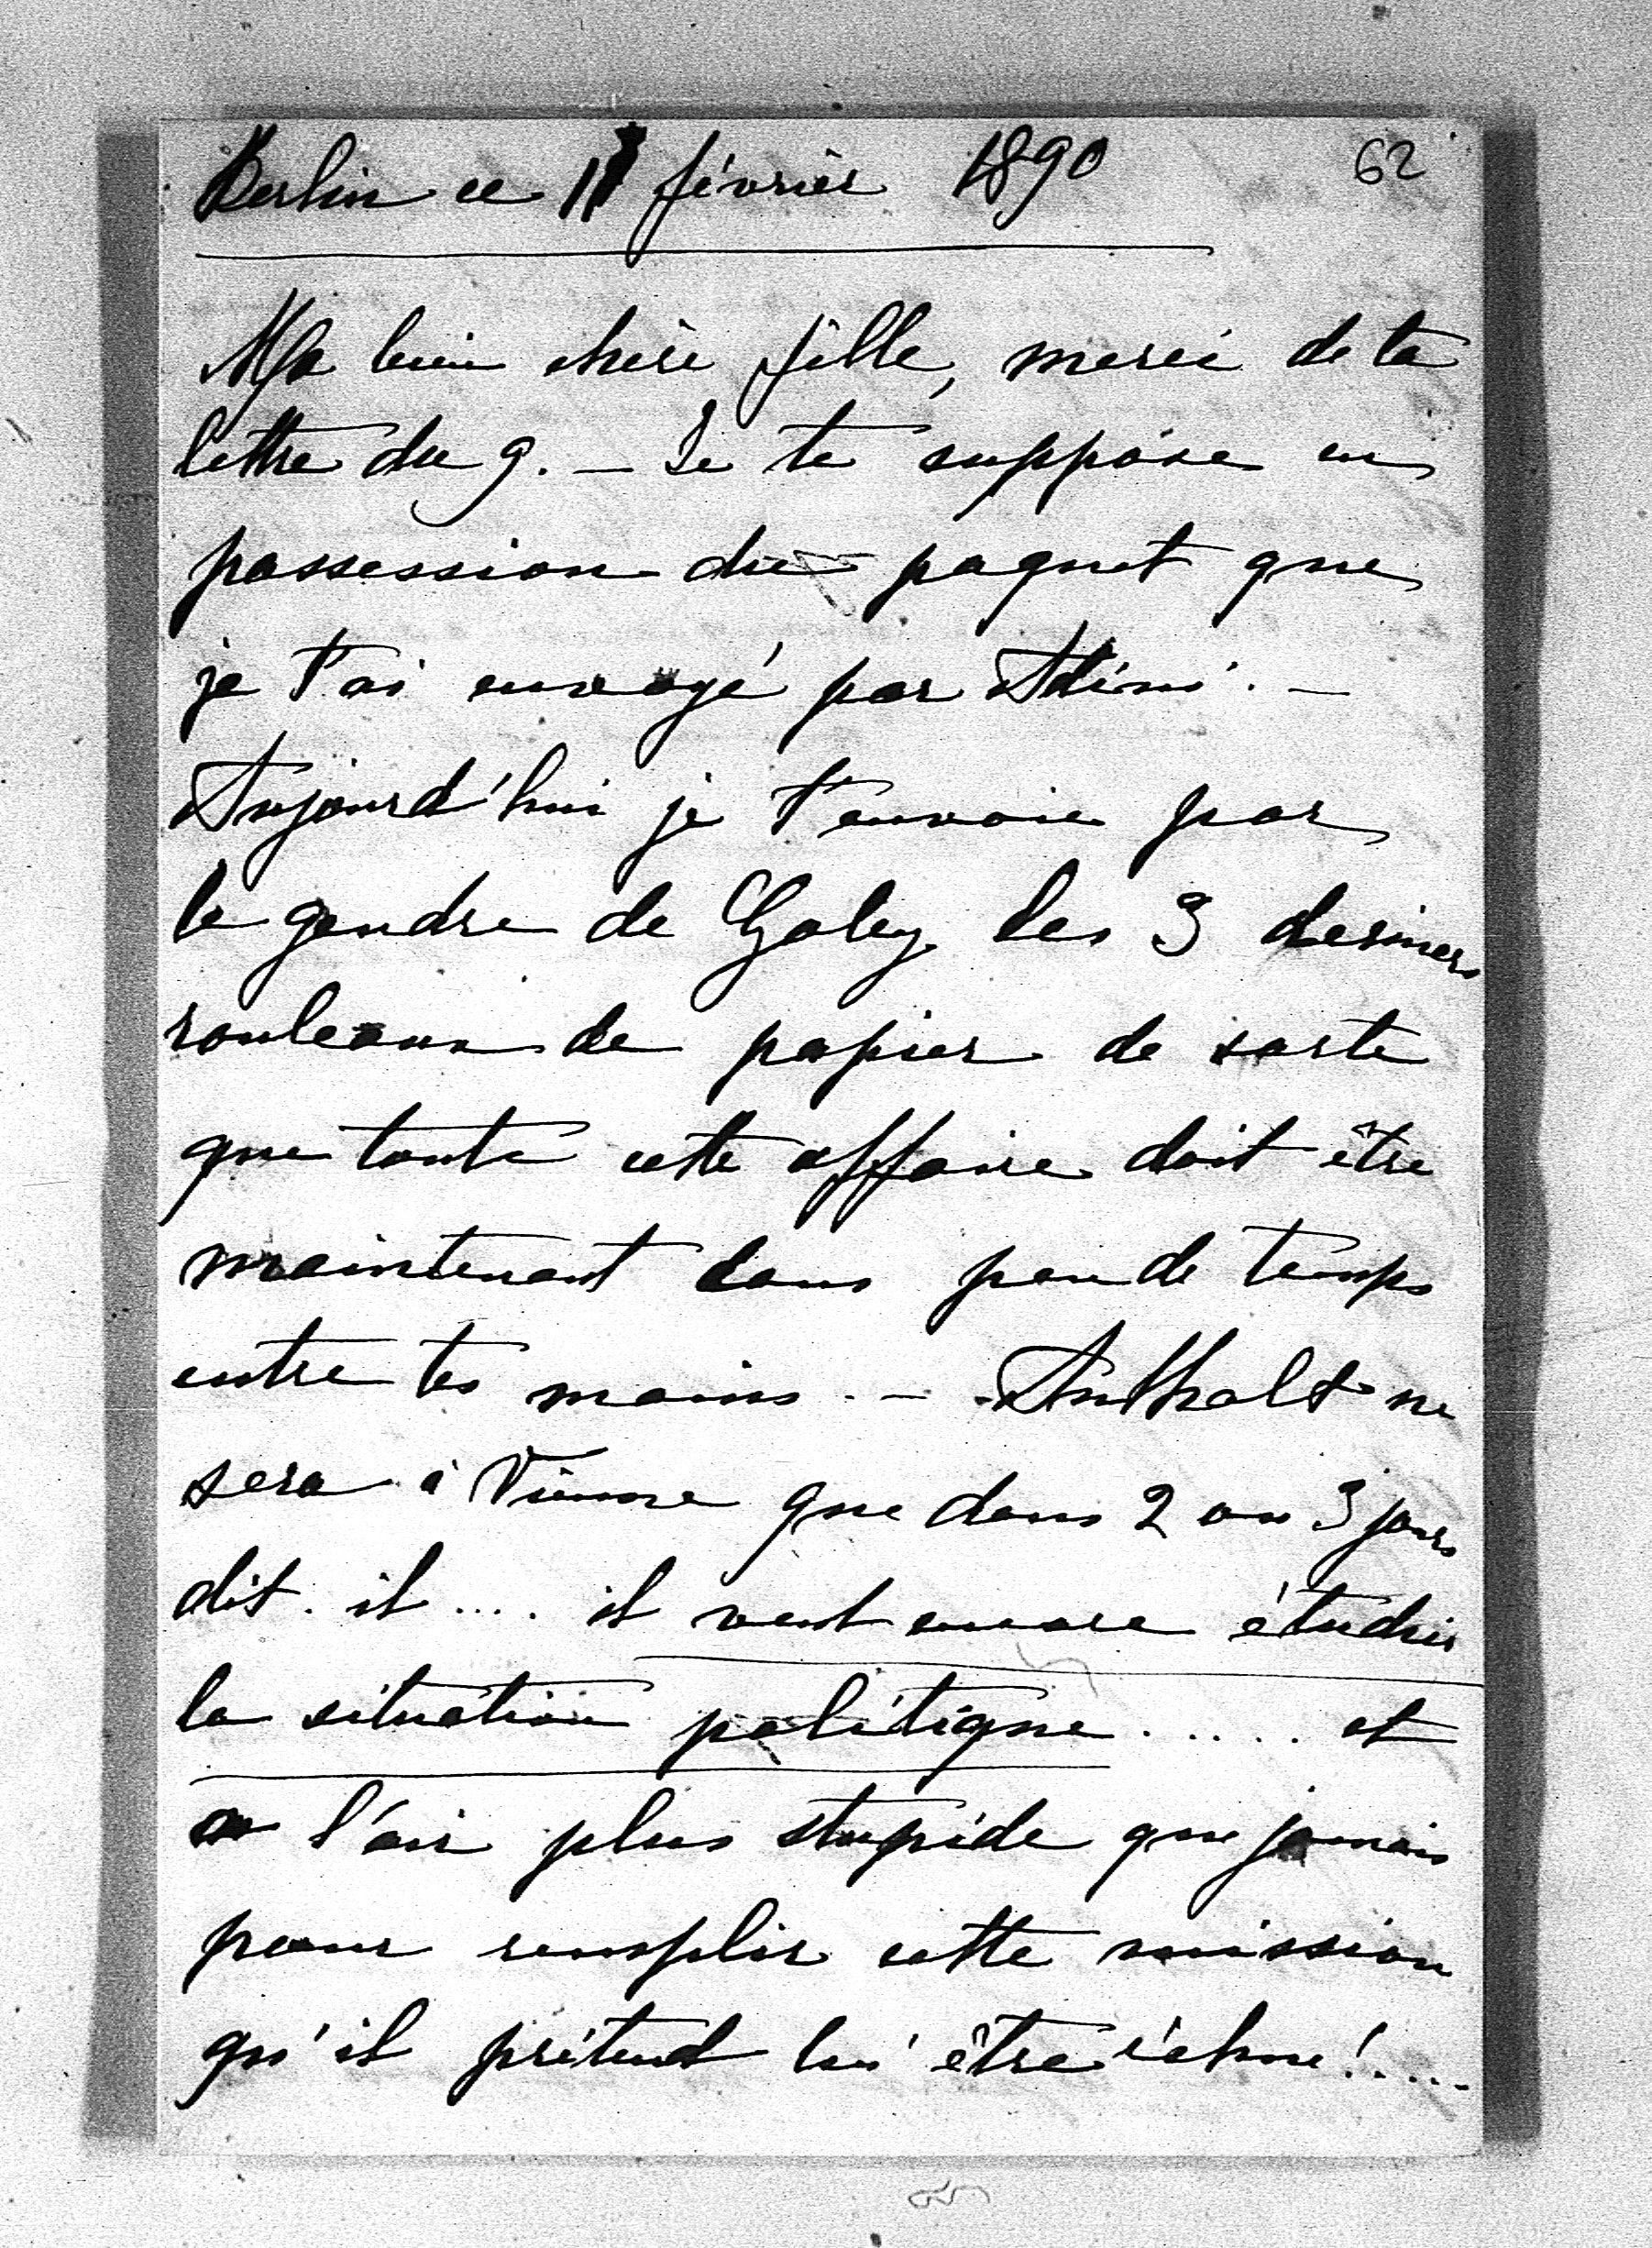 Berlin ce 11 février 1890
62
Ma bien chère fille, merci de ta
lettre du 9. – Je te suppose en
possession du paquet que
je t'ai envoyé par Adini. –
Aujourd'hui je t'envoie par
le gendre de Galey les 3 derniers
rouleaux de papier de sorte
que toute cette affaire doit être
maintenant dans peu de temps
entre tes mains. – Anthalt ne
sera à Vienne que dans 2 ou 3 jours
dit-il .... il veut encore étudier
la situation politique ..... et
a l'air plus stupide que jamais
pour remplir cette mission
qu'il prétend lui être échue!....